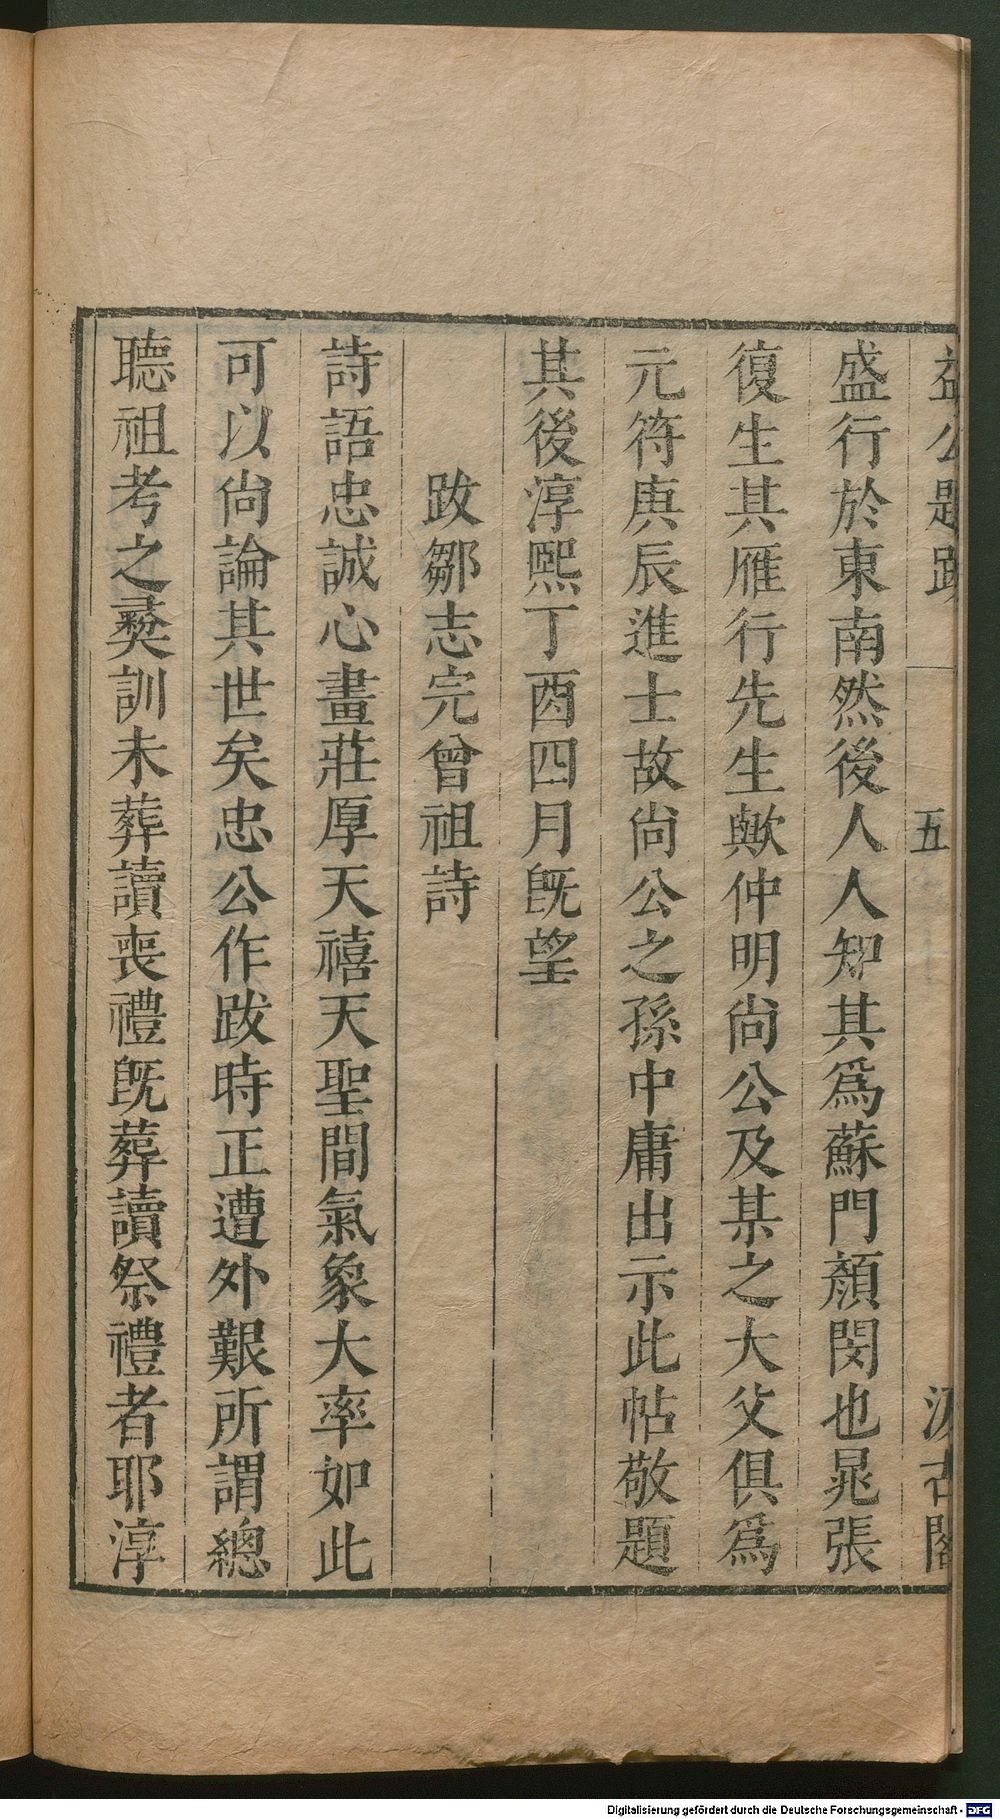 益公題跋 五 汲古閣
盛行於東南然後人人知其爲蘇門顏閔也晁張
復生其雁行先生歟仲明尙公及某之大父俱爲
元符庚辰進士故尙公之孫中庸出示此帖敬題
其後淳熙丁酉四月旣望
跋鄒志完曾祖詩
詩語忠誠心畫莊厚天禧天聖間氣象大率如此
可以尙論其世矣忠公作跋時正遭外艱所謂總
聽祖考之彛訓未葬讀喪禮旣葬讀祭禮者耶淳
Digitalisierung gefördert durch die Deutsche Forschungsgemeinschaft - DFG